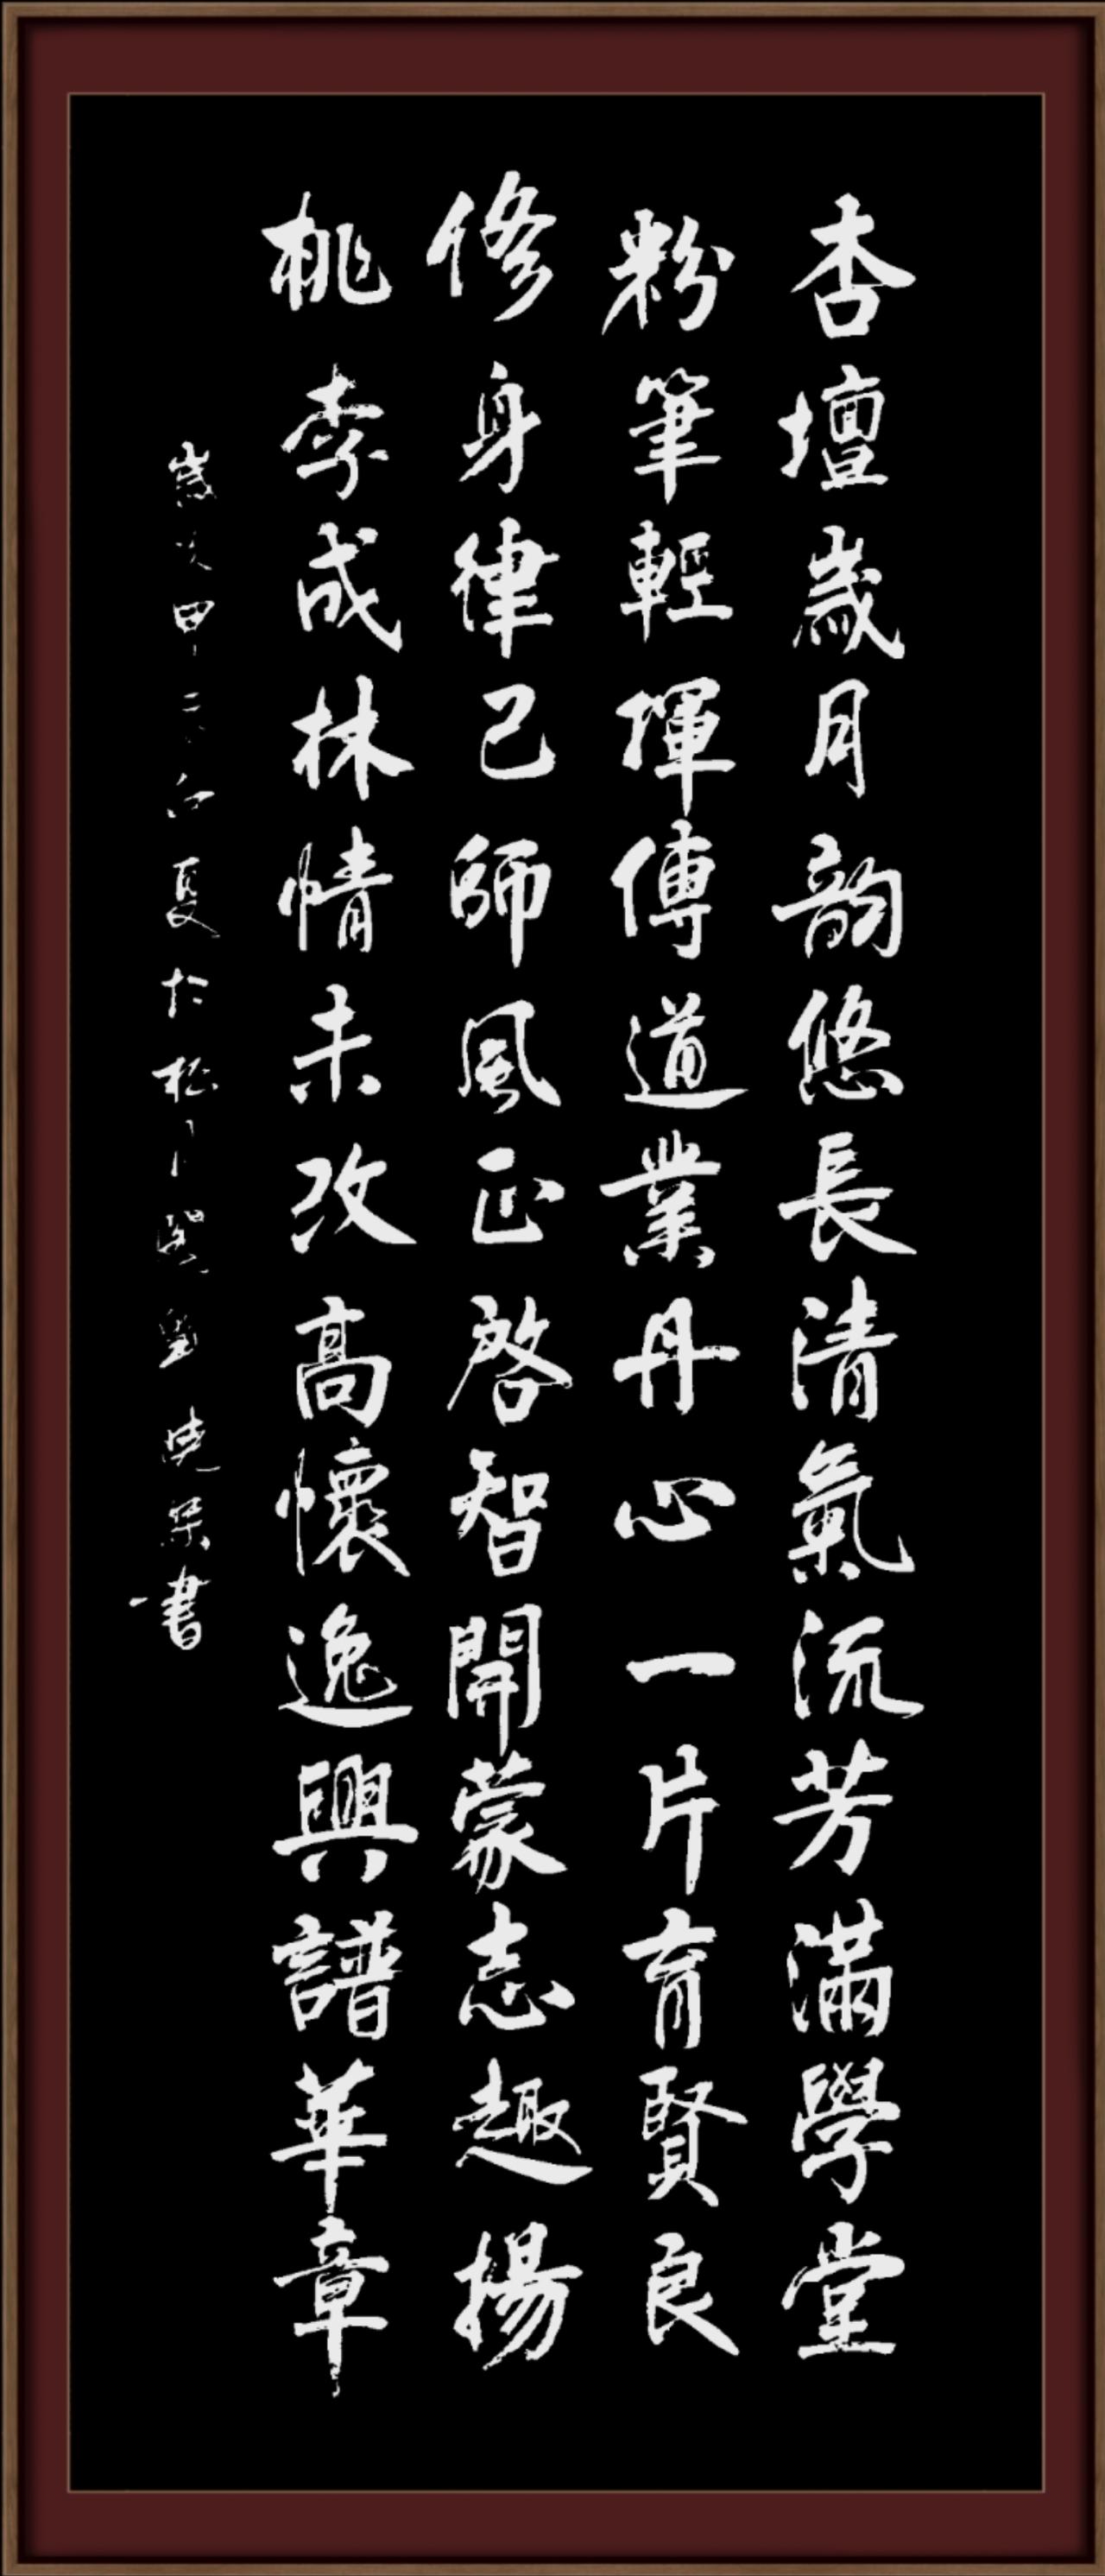 杏壇歲月韵悠長清氣流芳滿學堂
粉筆輕揮傳道業丹心一片育賢良
修身律己師風正啓智開蒙志趣揚
桃李成林情未改高懷逸興譜華章
歲次甲夏於松月書